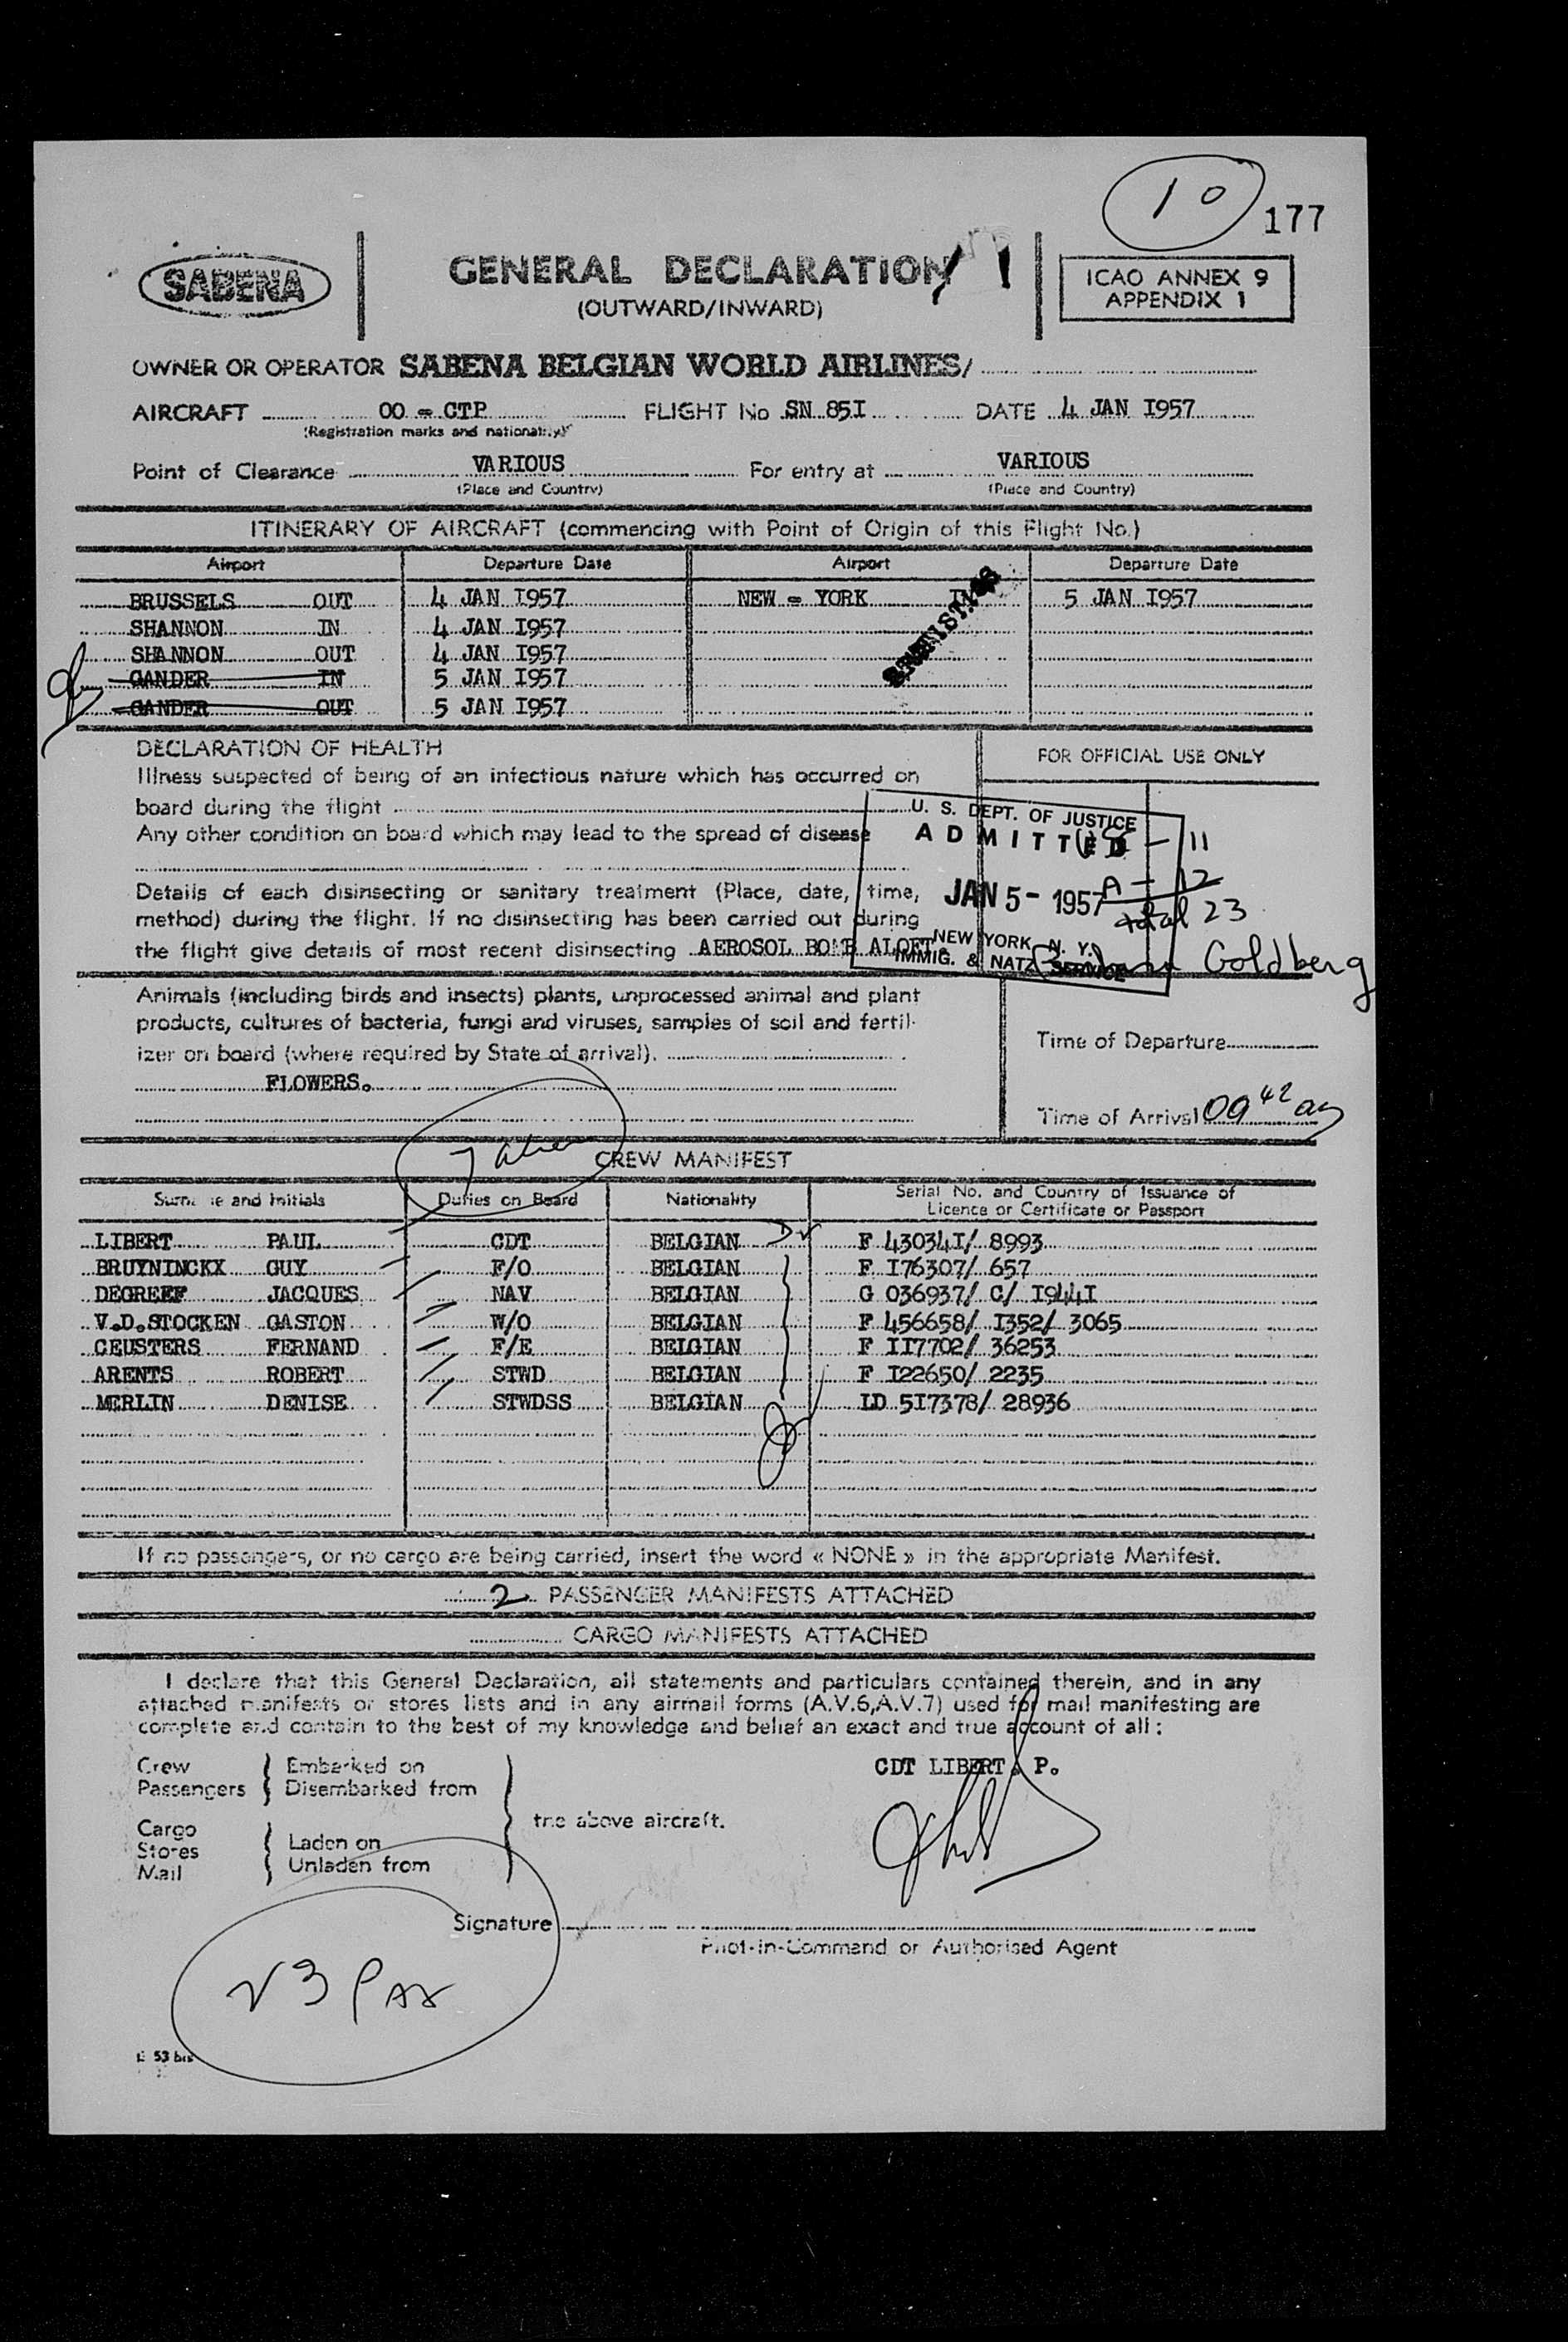 10
177
SABENA
GENERAL DECLARATION
(OUTWARD/INWARD)
ICAO ANNEX 9
APPENDIX 1
OWNER OR OPERATOR SABENA BELGIAN WORLD AIRLINES/
AIRCRAFT OO = CTP FLIGHT No SN 85I DATE 4 JAN I957
(Registration marks and nationality)
Point of Clearance VARIOUS For entry at VARIOUS
(Place and Country) (Place and Country)
ITINERARY OF AIRCRAFT (commencing with Point of Origin of this Flight No.)
Airport Departure Date Airport Departure Date
BRUSSELS OUT 4 JAN I957 NEW = YORK IN 5 JAN I957
SHANNON IN 4 JAN I957
SHANNON OUT 4 JAN I957
GANDER IN 5 JAN I957
GANDER OUT 5 JAN I957
DECLARATION OF HEALTH
FOR OFFICIAL USE ONLY
Illness suspected of being of an infectious nature which has occurred on
board during the flight
Any other condition on board which may lead to the spread of disease
Details of each disinsecting or sanitary treatment (Place, date, time,
method) during the flight. If no disinsecting has been carried out during
the flight give details of most recent disinsecting AEROSOL BOMB ALOFT
U. S. DEPT. OF JUSTICE
ADMITTED
JAN 5 - 1957
NEW YORK, N. Y.
IMMIG. & NATZ. SERVICE
- 11
A - 12
total 23
Goldberg
Animals (including birds and insects) plants, unprocessed animal and plant
products, cultures of bacteria, fungi and viruses, samples of soil and fertil-
izer on board (where required by State of arrival).
FLOWERS.
Time of Departure
Time of Arrival 09 42 am
7 alien
CREW MANIFEST
Surname and Initials Duties on Board Nationality Serial No. and Country of Issuance of
Licence or Certificate or Passport
LIBERT PAUL CDT BELGIAN F 43034I/ 8993
BRUYNINCKX GUY F/O BELGIAN F I76307/ 657
DEGREEF JACQUES NAV BELGIAN G 036937/ C/ I944I
V.D.STOCKEN GASTON W/O BELGIAN F 456658/ I352/ 3065
CEUSTERS FERNAND F/E BELGIAN F II7702/ 36253
ARENTS ROBERT STWD BELGIAN F I22650/ 2235
MERLIN DENISE STWDSS BELGIAN LD 5I7378/ 28936
If no passengers, or no cargo are being carried, insert the word « NONE » in the appropriate Manifest.
2 PASSENGER MANIFESTS ATTACHED
CARGO MANIFESTS ATTACHED
I declare that this General Declaration, all statements and particulars contained therein, and in any
attached manifests or stores lists and in any airmail forms (A.V.6,A.V.7) used for mail manifesting are
complete and contain to the best of my knowledge and belief an exact and true account of all :
Crew Embarked on
Passengers Disembarked from
Cargo
Stores Laden on
Mail Unladen from
the above aircraft.
CDT LIBERT. P.
Signature
Pilot-in-Command or Authorised Agent
23 Pax
53 bis